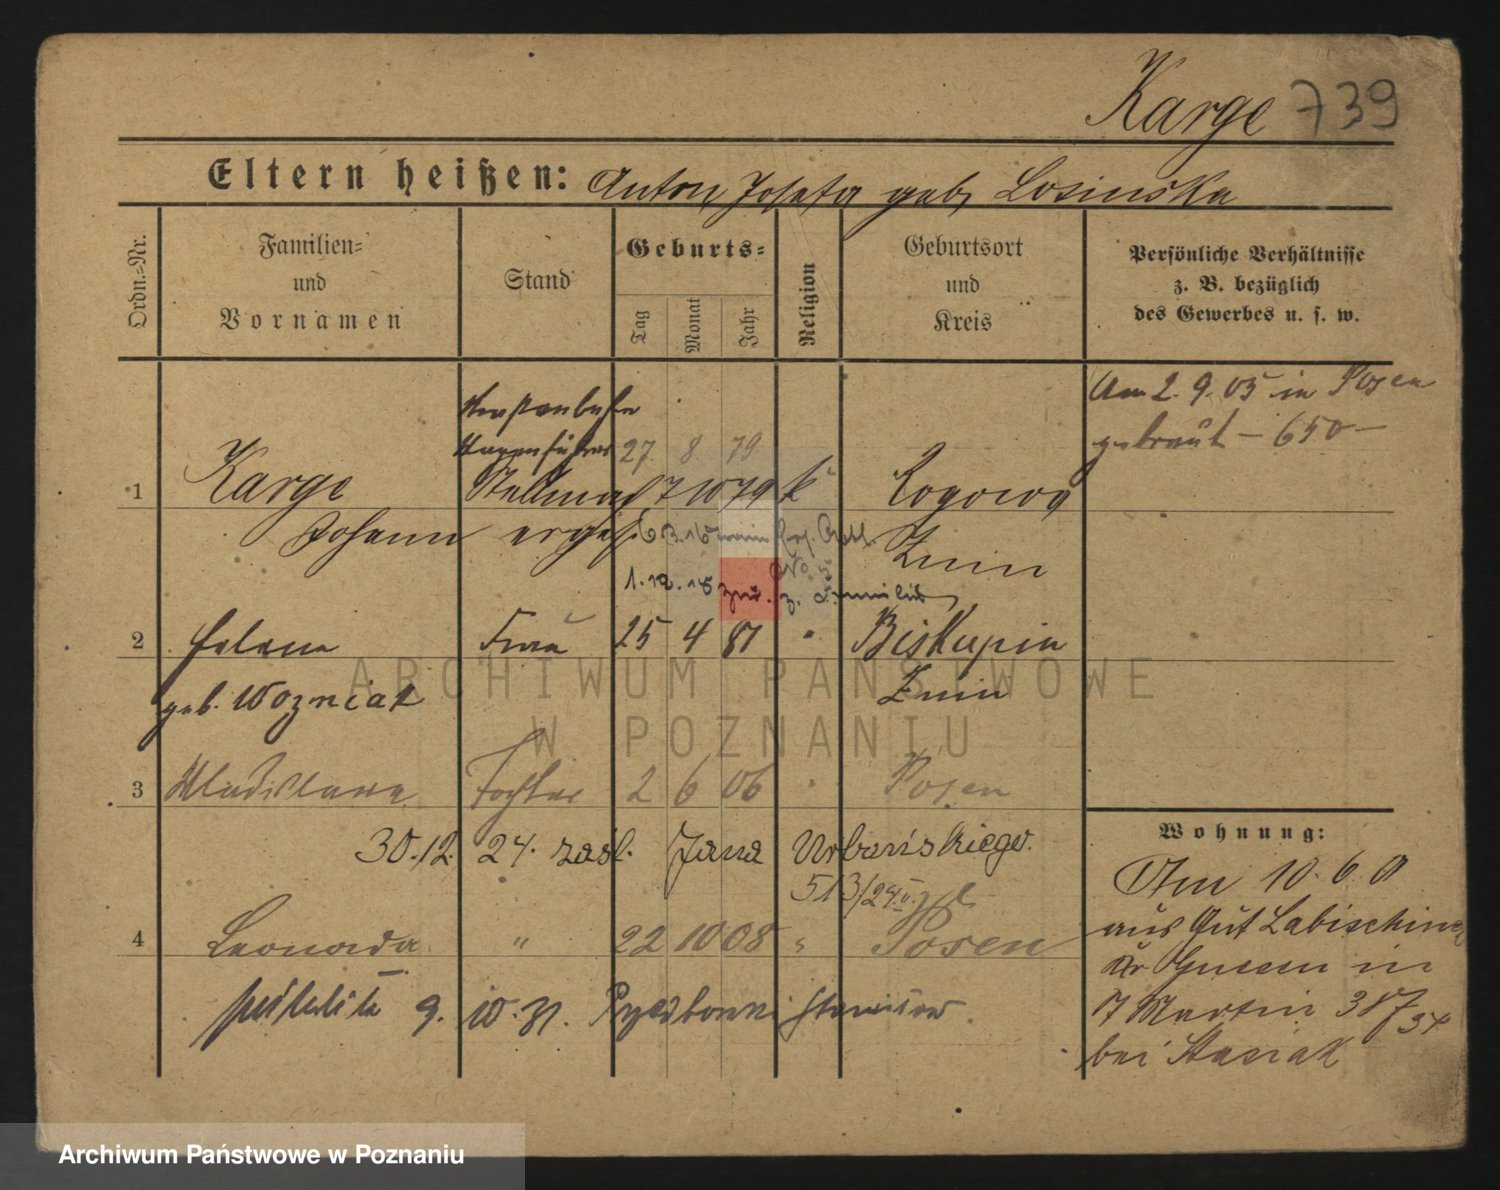 Karge 739
Eltern heißen: Anton Josefa geb. Losinska
Ordn.=Nr.
Familien=
und
Vornamen
Stand
Geburts=
Tag
Monat
Jahr
Religion
Geburtsort
und
Kreis
Persönliche Verhältnisse
z. B. bezüglich
des Gewerbes u. s. w.
Am 2. 9. 05 in Posen
getraut — 650 —
27. 8. 79
1 Karge Stellmach 7 10 79 k Rogowo
Johann Znin
1. 12. 18 z. Familie
2 Helena Frau 25 4 81 " Biskupin
geb. Wozniak Znin
3 Wladislawa Tochter 2 6 06 " Posen
30. 12. 24. zaśl. Jana Urbańskiego
513/24
4 Leonarda " 22 10 08 " Posen
9. 10. 31. Stanisław
Wohnung:
Am 10. 6. 0
aus Gut Labischin
Kr Gnesen in
Martin 38
34
bei Stasiak
ARCHIWUM PAŃSTWOWE
W POZNANIU
Archiwum Państwowe w Poznaniu